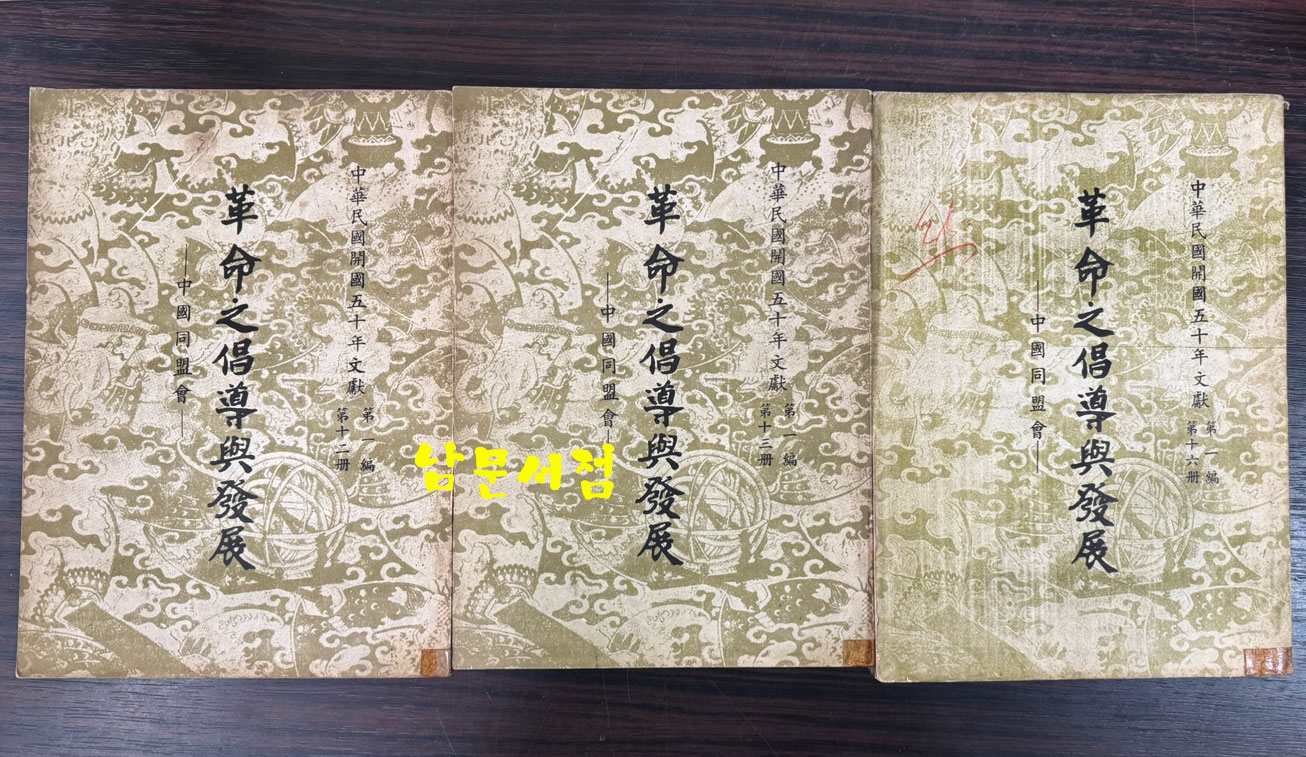 中華民國開國五十年文獻
第一編
第十二册
革命之倡導與發展
—中國同盟會—
中華民國開國五十年文獻
第一編
第十三册
革命之倡導與發展
—中國同盟會—
中華民國開國五十年文獻
第一編
第十六册
革命之倡導與發展
—中國同盟會—
남문서점